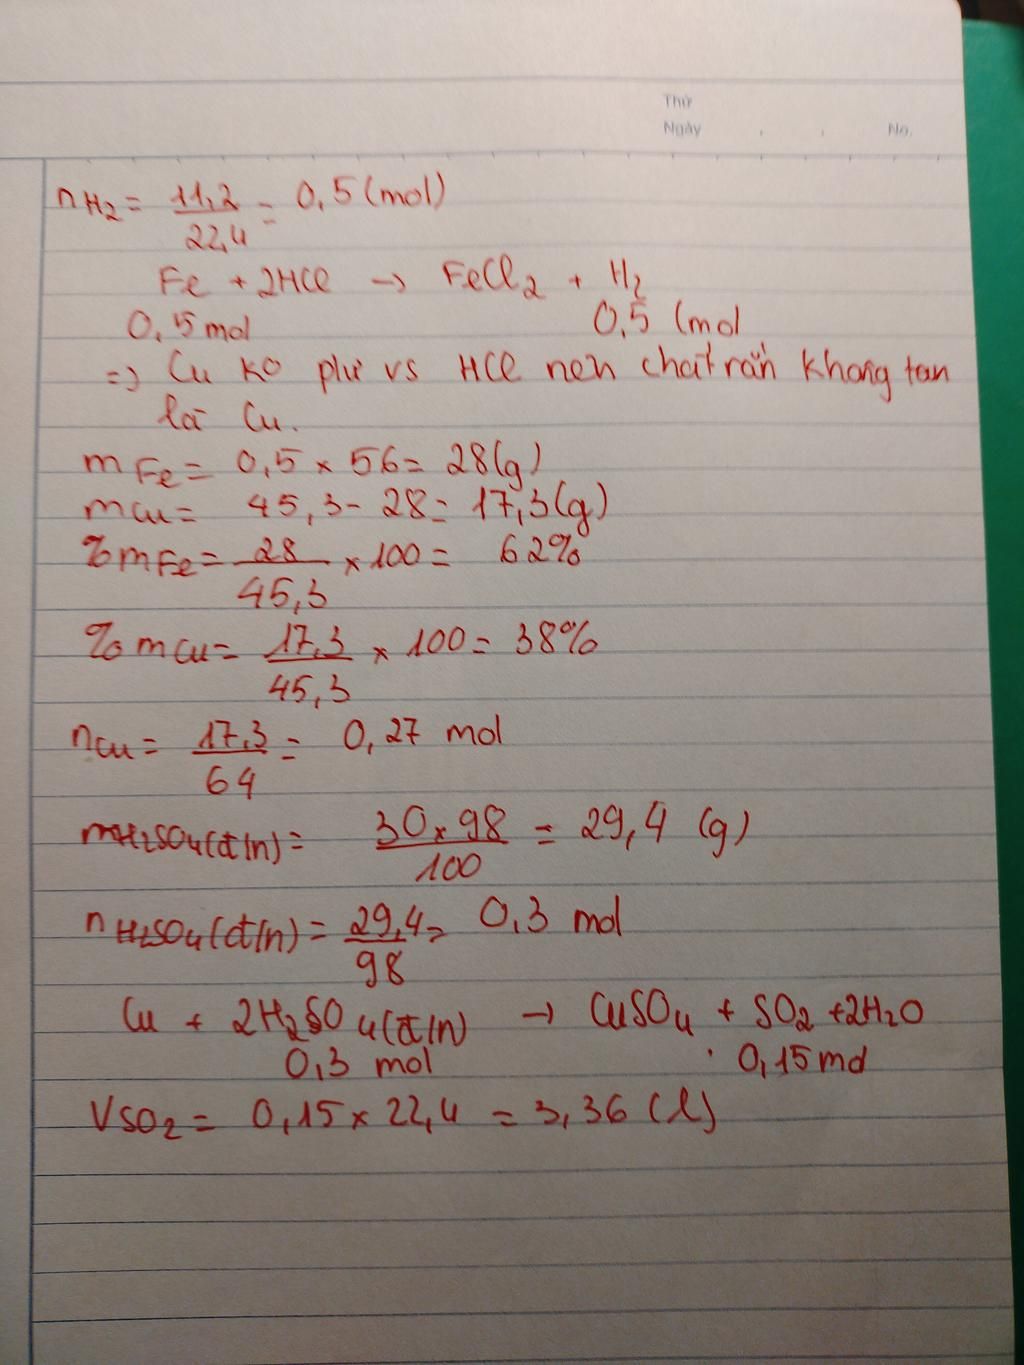 Thứ
Ngày . . No.
nH₂ = 11,2/22,4 = 0,5 (mol)
Fe + 2HCl → FeCl₂ + H₂
0,5 mol 0,5 (mol
=> Cu ko phứ vs HCl nen chất rắn khong tan
là Cu.
mFe = 0,5 × 56 = 28(g)
mcu = 45,3 - 28 = 17,3(g)
%mFe = 28/45,3 × 100 = 62%
%mcu = 17,3/45,3 × 100 = 38%
ncu = 17,3/64 = 0,27 mol
mH₂SO₄(đ/n) = 30×98/100 = 29,4 (g)
nH₂SO₄(đ/n) = 29,4/98 = 0,3 mol
Cu + 2H₂SO₄(đ/n) → CuSO₄ + SO₂ + 2H₂O
0,3 mol 0,15 mol
VSO₂ = 0,15 × 22,4 = 3,36 (l)